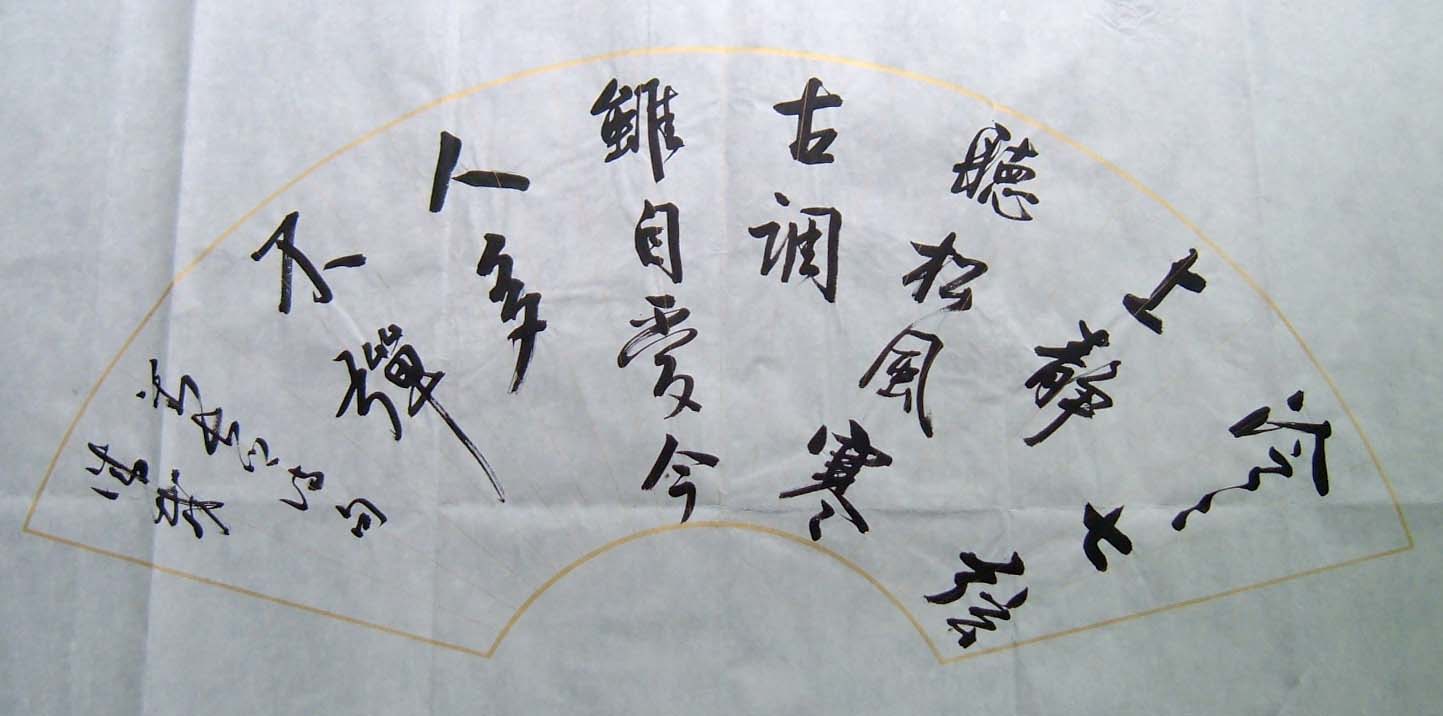 泠々七弦
上靜
聽松風寒
古調
雖自愛今
人多
不彈
詩句